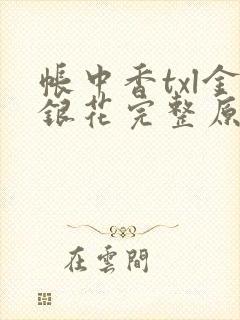 帳中香txl金
銀花完整原
在雲間